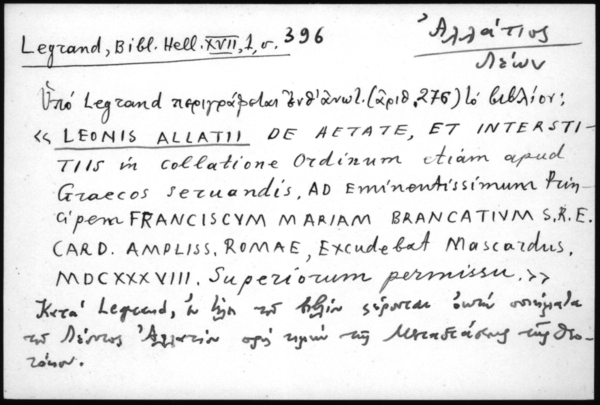 Legrand, Bibl. Hell. XVII, 1, σ. 396
Ἀλλάτιος
Λέων
Ὑπό Legrand περιγράφεται ἔνθ' ἀνωτ. (ἀριθ. 276) τό βιβλίον:
« LEONIS ALLATII DE AETATE, ET INTERSTI-
TIIS in collatione Ordinum etiam apud
Graecos seruandis, AD Eminentissimum Prin-
cipem FRANCISCVM MARIAM BRANCATIVM S.R.E.
CARD. AMPLISS. ROMAE, Excudebat Mascardus,
MDCXXXVIII. Superiorum permissu. »
Κατά Legrand, ἐν τέλει τοῦ βιβλίου εὑρίσκεται
τοῦ Λέοντος Ἀλλατίου τῆς Μεταστάσεως τῆς Θεο-
τόκου.